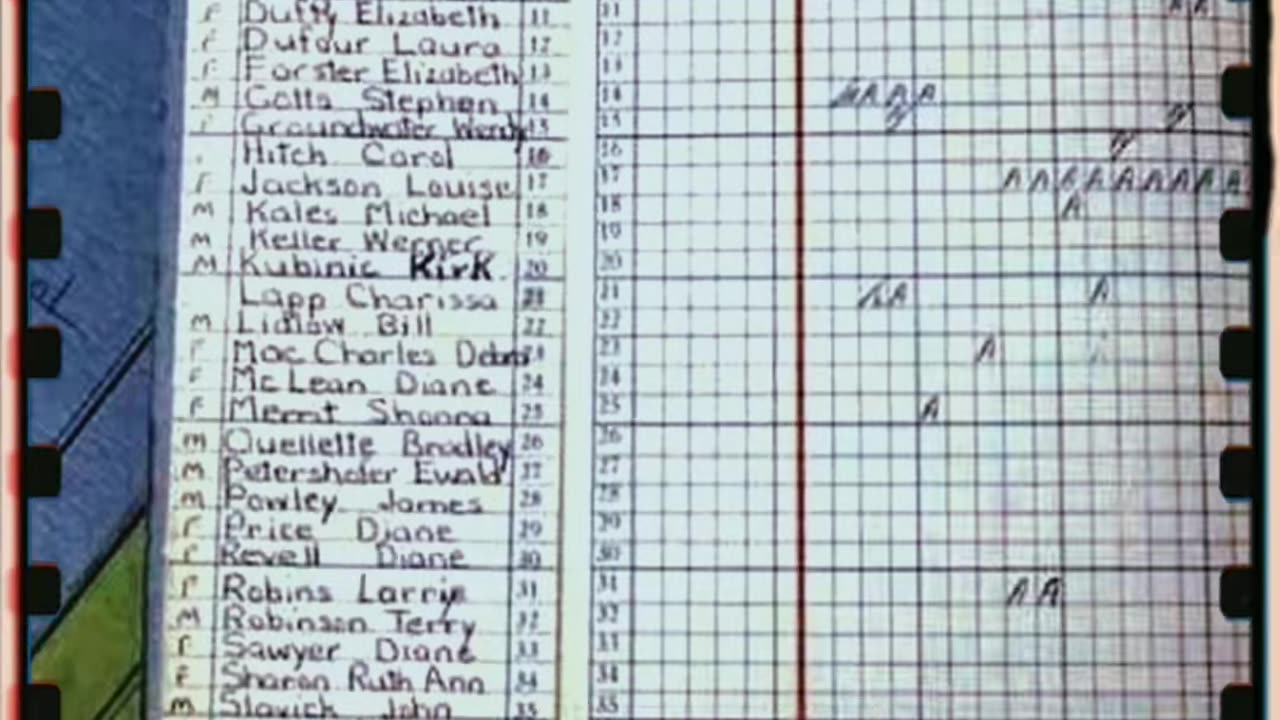 F Duffy Elizabeth 11 11 A A
F Dufour Laura 12 12
F Forster Elizabeth 13 13
M Golla Stephen 14 14 A A A
F Groundwater Wendy 15 15
Hitch Carol 16 16
F Jackson Louise 17 17 A A A A A A A A A
M Kales Michael 18 18 A
M Keller Werner 19 19
M Kubinic Kirk 20 20
Lapp Charissa 21 21 A A
M Lidlow Bill 22 22
F MacCharles Debra 23 23 A
F McLean Diane 24 24
F Merrit Shonna 25 25 A
M Ouellette Bradley 26 26
M Petershofer Ewald 27 27
M Powley James 28 28
F Price Diane 29 29
F Revell Diane 30 30
F Robins Larrie 31 31 A A
M Robinson Terry 32 32
F Sawyer Diane 33 33
F Sharon Ruth Ann 34 34
M Slavich John 35 35